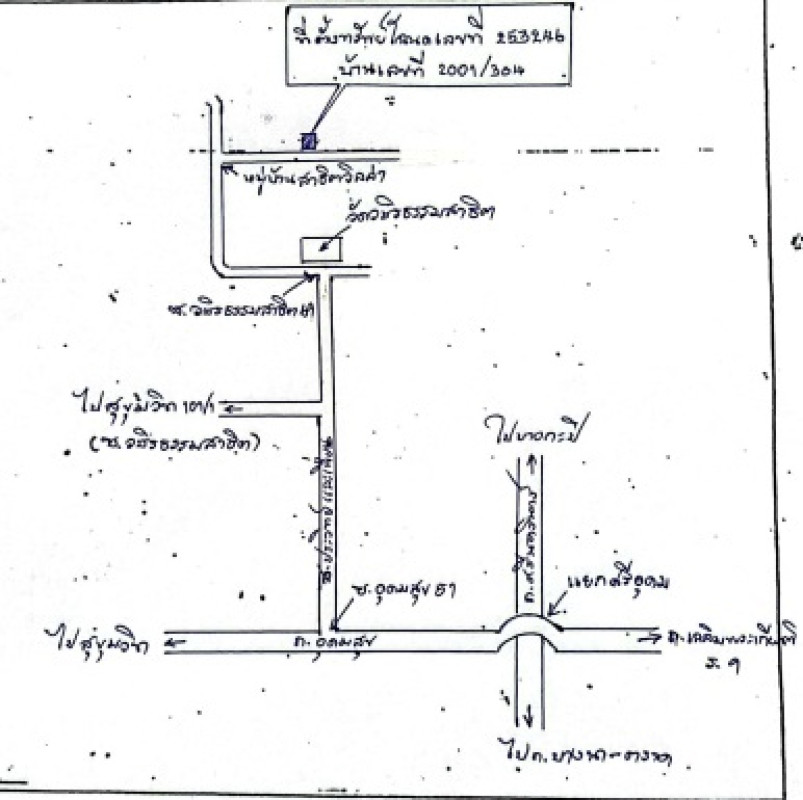 ที่ตั้งทรัพย์โฉนดเลขที่ 253246
บ้านเลขที่ 2001/304
หมู่บ้านสาธิตวิลล่า
วัดวชิรธรรมสาธิต
ซ.วชิรธรรมสาธิต
ไปสุขุมวิท 101/1
(ซ.วชิรธรรมสาธิต)
ไปบางกะปิ
ซ.ประวิทย์และเพื่อน
ถ.ศรีนครินทร์
แยกศรีอุดม
ซ.อุดมสุข 51
ไปสุขุมวิท
ถ.อุดมสุข
ถ.เฉลิมพระเกียรติ
ร.๙
ไปถ.บางนา-ตราด